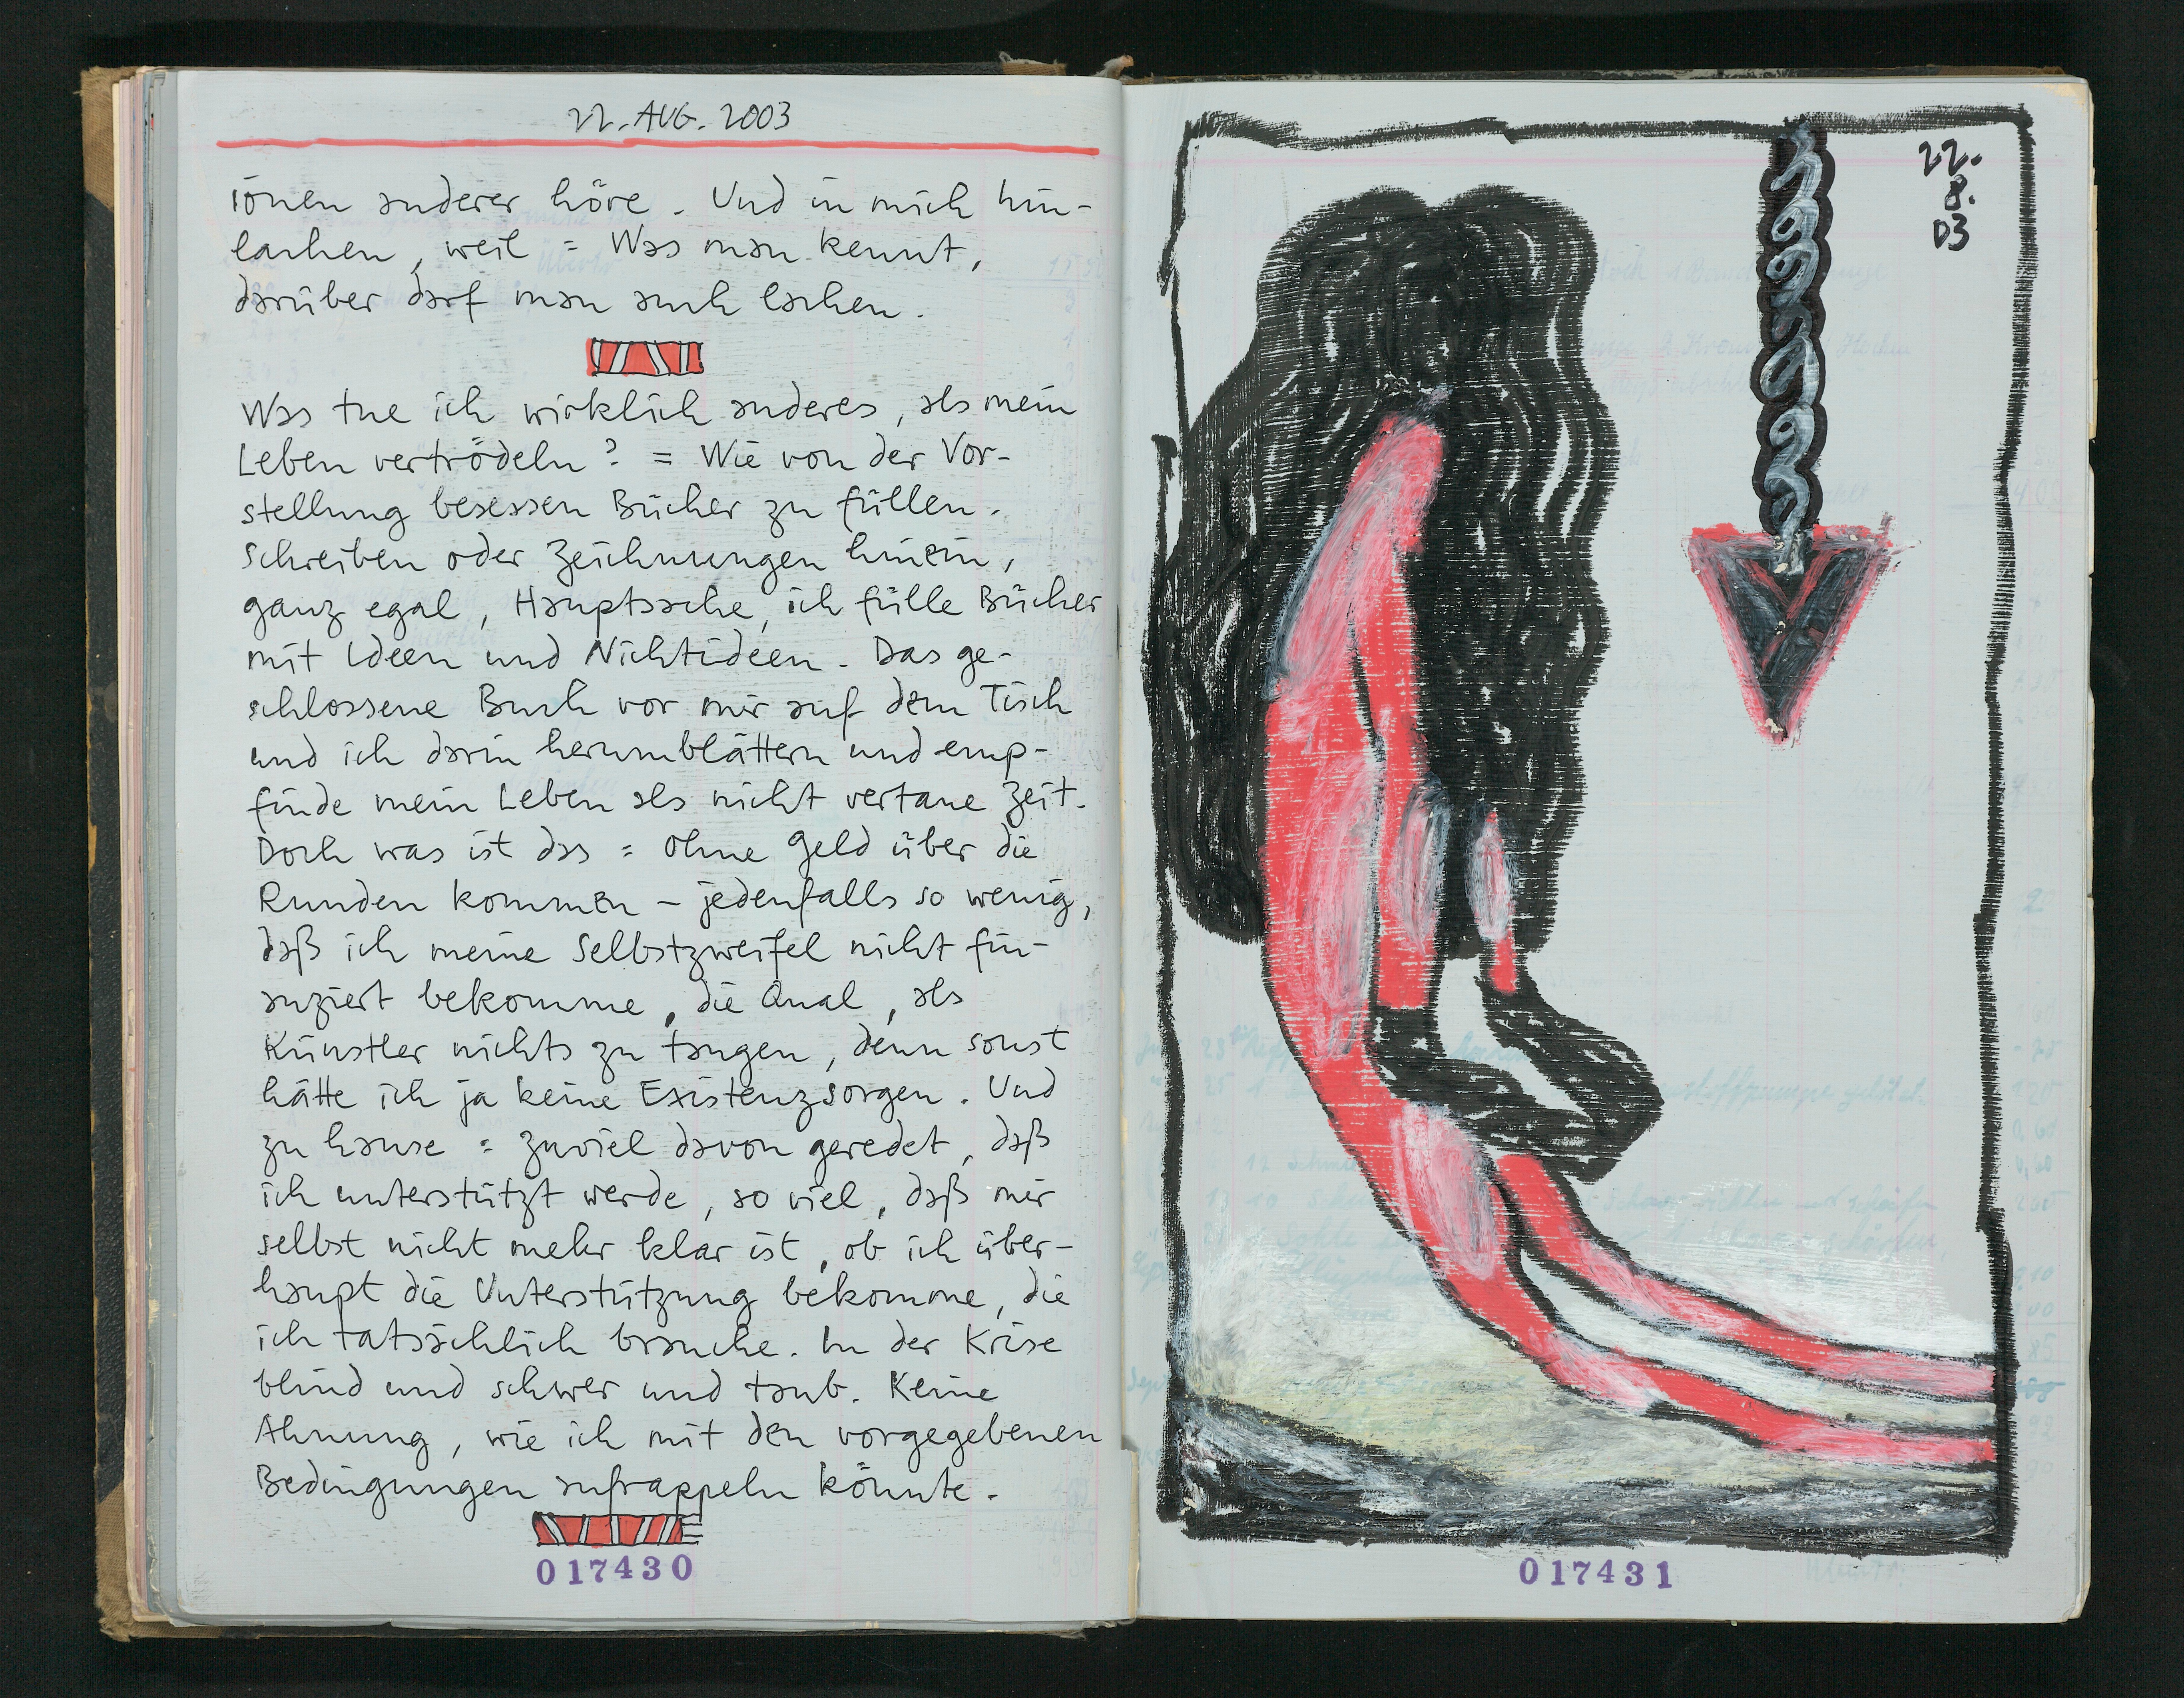 22. AUG. 2003
ionen anderer höre. Und in mich hin-
lachen, weil = Was man kennt,
darüber darf man auch lachen.
Was tue ich wirklich anderes, als mein
Leben vertrödeln? = Wie von der Vor-
stellung besessen Bücher zu füllen.
Schreiben oder Zeichnungen hinein,
ganz egal, Hauptsache, ich fülle Bücher
mit Ideen und Nichtideen. Das ge-
schlossene Buch vor mir auf dem Tisch
und ich darin herumblättern und emp-
finde mein Leben als nicht vertane Zeit.
Doch was ist das = ohne Geld über die
Runden kommen – jedenfalls so wenig,
daß ich meine Selbstzweifel nicht fin-
anziert bekomme, die Qual, als
Künstler nichts zu taugen, denn sonst
hätte ich ja keine Existenzsorgen. Und
zu hause = zuviel davon geredet, daß
ich unterstützt werde, so viel, daß mir
selbst nicht mehr klar ist, ob ich über-
haupt die Unterstützung bekomme, die
ich tatsächlich brauche. In der Krise
blind und schwer und taub. Keine
Ahnung, wie ich mit den vorgegebenen
Bedingungen aufrappeln könnte.
017430
22.
8.
03
017431